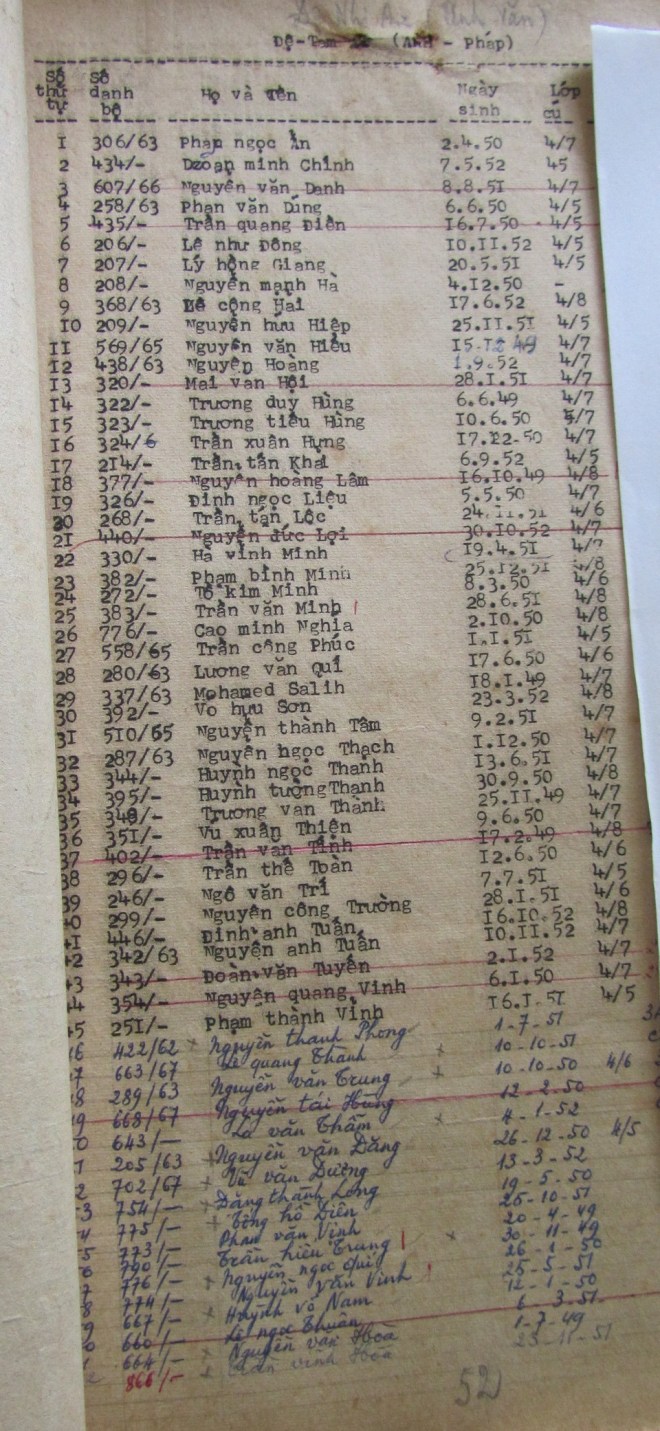 Đệ-Tam (Anh - Pháp)
Số thứ tự Số danh bộ Họ và Tên Ngày sinh Lớp cũ
I 306/63 Phạm ngọc Ẩn 2.4.50 4/7
2 434/- Đoàn minh Chính 7.5.52 45
3 607/66 Nguyễn văn Danh 8.8.5I 4/7
4 258/63 Phan văn Dũng 6.6.50 4/5
5 435/- Trần quang Điền I6.7.50 4/5
6 206/- Lê như Đông I0.II.52 4/5
7 207/- Lý hồng Giang 20.5.5I 4/5
8 208/- Nguyễn mạnh Hà 4.I2.50 -
9 368/63 Lê công Hai I7.6.52 4/8
I0 209/- Nguyễn hữu Hiệp 25.II.5I 4/5
II 569/65 Nguyễn văn Hiếu I5.I2.49 4/7
I2 438/63 Nguyễn Hoàng I.9.52 4/7
I3 320/- Mai văn Hội 28.I.5I 4/7
I4 322/- Trương duy Hùng 6.6.49 4/7
I5 323/- Trương tiểu Hùng I0.6.50 4/7
I6 324/6 Trần xuân Hưng I7.I2.50 4/7
I7 2I4/- Trần tấn Khải 6.9.52 4/5
I8 377/- Nguyễn hoàng Lâm I6.I0.49 4/8
I9 326/- Đinh ngọc Liệu 5.5.50 4/7
20 268/- Trần tấn Lộc 24.II.5I 4/6
2I 440/- Nguyễn đức Lợi 30.I0.52 4/7
22 330/- Hà vĩnh Minh I9.4.5I 4/7
23 382/- Phạm bỉnh Minh 25.I2.5I 4/8
24 272/- Tô kim Minh 8.3.50 4/6
25 383/- Trần văn Minh 28.6.5I 4/8
26 776/- Cao minh Nghĩa 2.I0.50 4/8
27 558/65 Trần công Phúc I.I.5I 4/5
28 280/63 Lương văn quí I7.6.50 4/6
29 337/63 Mohamed Salih I8.I.49 4/7
30 392/- Vo hưu Sơn 23.3.52 4/8
3I 5I0/65 Nguyễn thành Tâm 9.2.5I 4/7
32 287/63 Nguyễn ngọc Thạch I.I2.50 4/7
33 344/- Huỳnh ngọc Thanh I3.6.5I 4/7
34 395/- Huỳnh tường Thanh 30.9.50 4/8
35 348/- Trương văn Thành 25.II.49 4/7
36 35I/- Vũ xuân Thiện 9.6.50 4/7
37 402/- Trần văn Tính I7.2.49 4/8
38 296/- Trần thế Toàn I2.6.50 4/6
39 246/- Ngô văn Trí 7.7.5I 4/5
40 299/- Nguyễn công Trường 28.I.5I 4/6
4I 446/- Đinh anh Tuấn I6.I0.52 4/8
42 342/63 Nguyễn anh Tuấn I0.II.52 4/7
43 343/- Đoàn văn Tuyến 2.I.52 4/7
44 354/- Nguyễn quang Vinh 6.I.50 4/7
45 25I/- Phạm thành Vĩnh I6.I.5I 4/5
46 422/62 x Nguyễn thanh Phong 1-7-51
7 663/67 Lê quang Thành x 10-10-51
8 289/63 Nguyễn văn Trung x 10-10-50 4/6
9 668/67 Nguyễn tái Hùng 12-2-50
0 643/- La văn Thẩm x 4-1-52
1 205/63 x Nguyễn văn Đăng 26-12-50 4/5
2 702/67 x Vũ văn Dưỡng 13-3-52
3 754/- x Đặng thành Long 19-5-50
4 775/- + Tống hồ Liên 25-10-51
5 773/- Phan văn Vinh 20-4-49
6 790/- Trần hiếu Trung x 30-11-49
7 776/- x Nguyễn ngọc Quí 26-1-50
8 774/- Nguyễn văn Vinh 25-5-51
9 667/- x Huỳnh võ Nam 12-1-50
0 660/- Lê ngọc Thuần 6-3-51
1 664/- x Nguyễn văn Hòa 1-7-49
866/- x Trần vinh Hòa 23-11-51
52